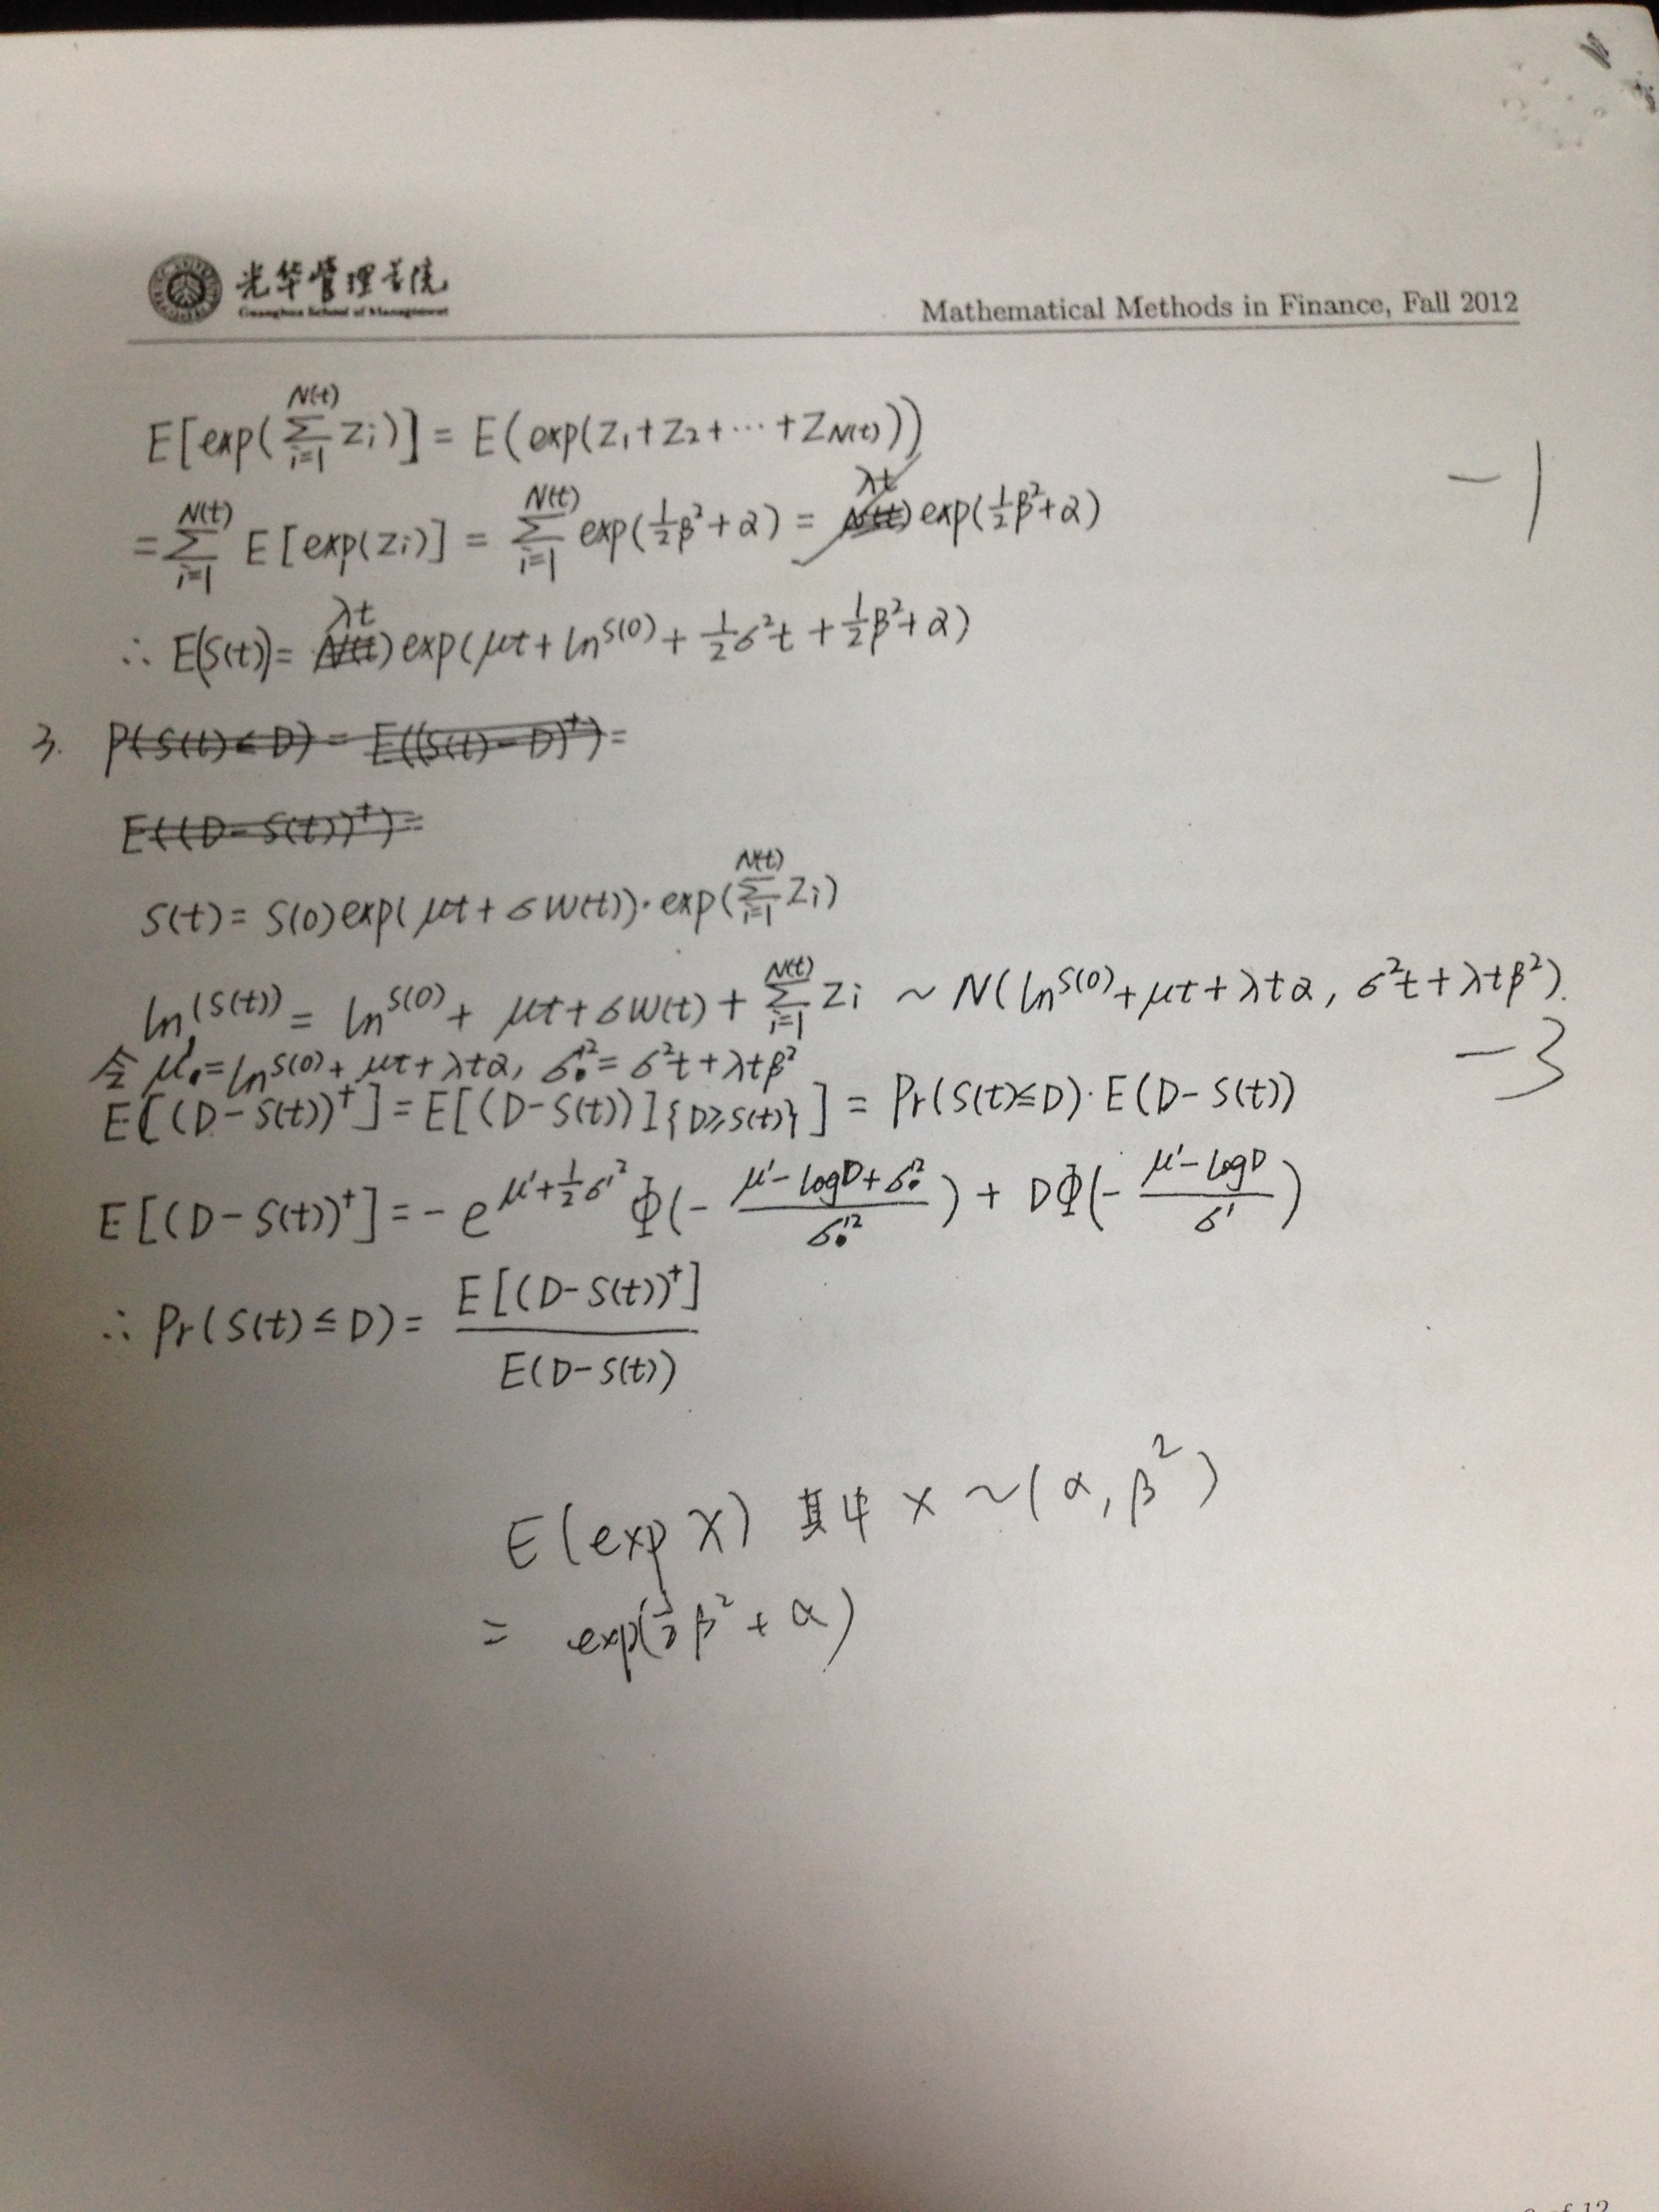 光华管理学院
Guanghua School of Management
Mathematical Methods in Finance, Fall 2012
E[exp(∑_{i=1}^{N(t)} Zi)] = E(exp(Z₁+Z₂+⋯+Z_{N(t)}))
-1
= ∑_{i=1}^{N(t)} E[exp(Zi)] = ∑_{i=1}^{N(t)} exp(½β²+α) = λt exp(½β²+α)
∴ E(S(t)) = λt exp(μt + ln^{S(0)} + ½σ²t + ½β²+α)
3. P(S(t)≤D) = E((S(t)-D)⁺) =
E((D-S(t))⁺) =
S(t) = S(0)exp(μt+σW(t))·exp(∑_{i=1}^{N(t)} Zi)
ln^{(S(t))} = ln^{S(0)} + μt+σW(t) + ∑_{i=1}^{N(t)} Zi ~ N(ln^{S(0)}+μt+λtα, σ²t+λtβ²).
-3
令 μ' = ln^{S(0)} + μt+λtα, σ'² = σ²t+λtβ²
E[(D-S(t))⁺] = E[(D-S(t)) 1{D≥S(t)}] = Pr(S(t)≤D)·E(D-S(t))
E[(D-S(t))⁺] = -e^{μ'+½σ'²} Φ(-(μ'-logD+σ'²)/σ'²) + DΦ(-(μ'-logD)/σ')
∴ Pr(S(t)≤D) = E[(D-S(t))⁺] / E(D-S(t))
E(exp X) 其中 X~(α,β²)
= exp(½β²+α)
of 12